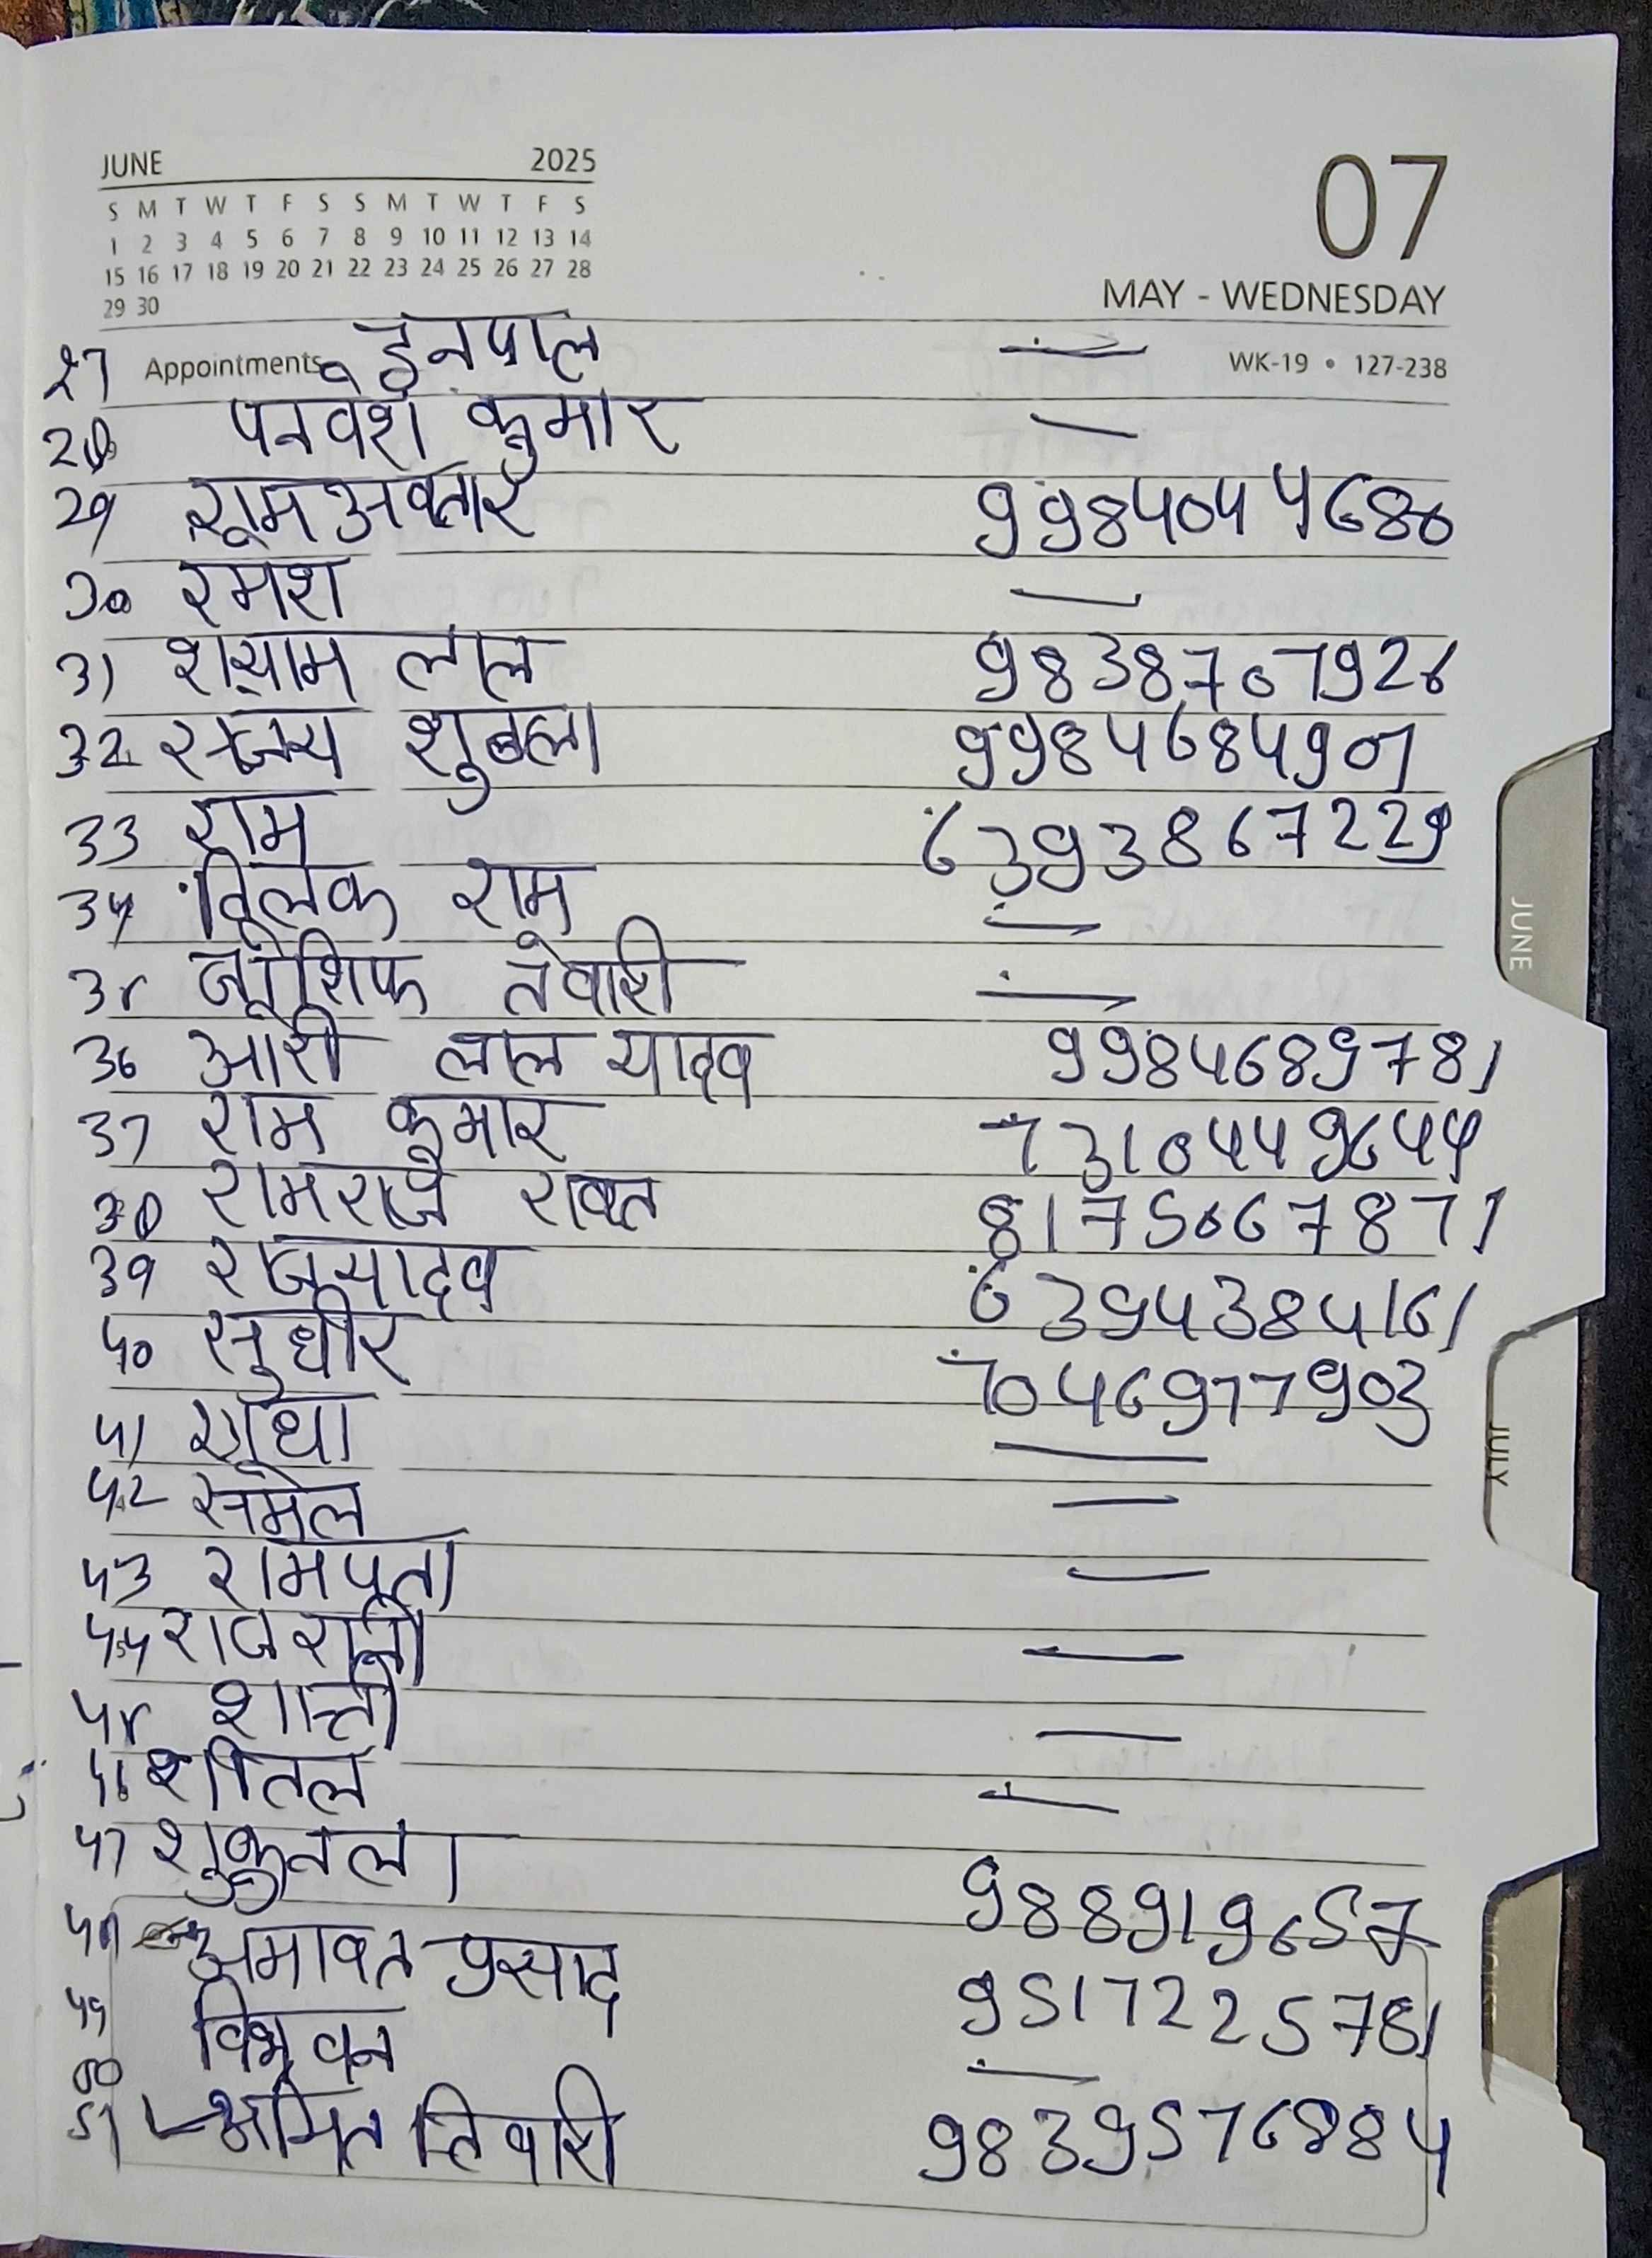 JUNE 2025
S M T W T F S S M T W T F S
1 2 3 4 5 6 7 8 9 10 11 12 13 14
15 16 17 18 19 20 21 22 23 24 25 26 27 28
29 30
07
MAY - WEDNESDAY
Appointments WK-19 • 127-238
27 ईनपाल —
28 पनवेश कुमार —
29 रामअवतार 9984044680
30 रमेश —
31 श्याम लाल 9838707926
32 शुक्ला 9984684907
33 राम 6393867229
34 तिलक राम —
35 तेवारी —
36 ओरी लाल यादव 9984689781
37 राम कुमार 7310449644
38 रामराज रावत 8175067871
39 राजूयादव 6394384161
40 सुधीर 7046977903
41 राधा —
42 समेल —
43 रामपूता —
44 राजरानी —
45 शान्ती —
46 शीतल —
47 शुकुनतला
48 प्रसाद 9889196657
49 9517225781
50 —
51 अमित तिवारी 9839576884
JUNE
JULY